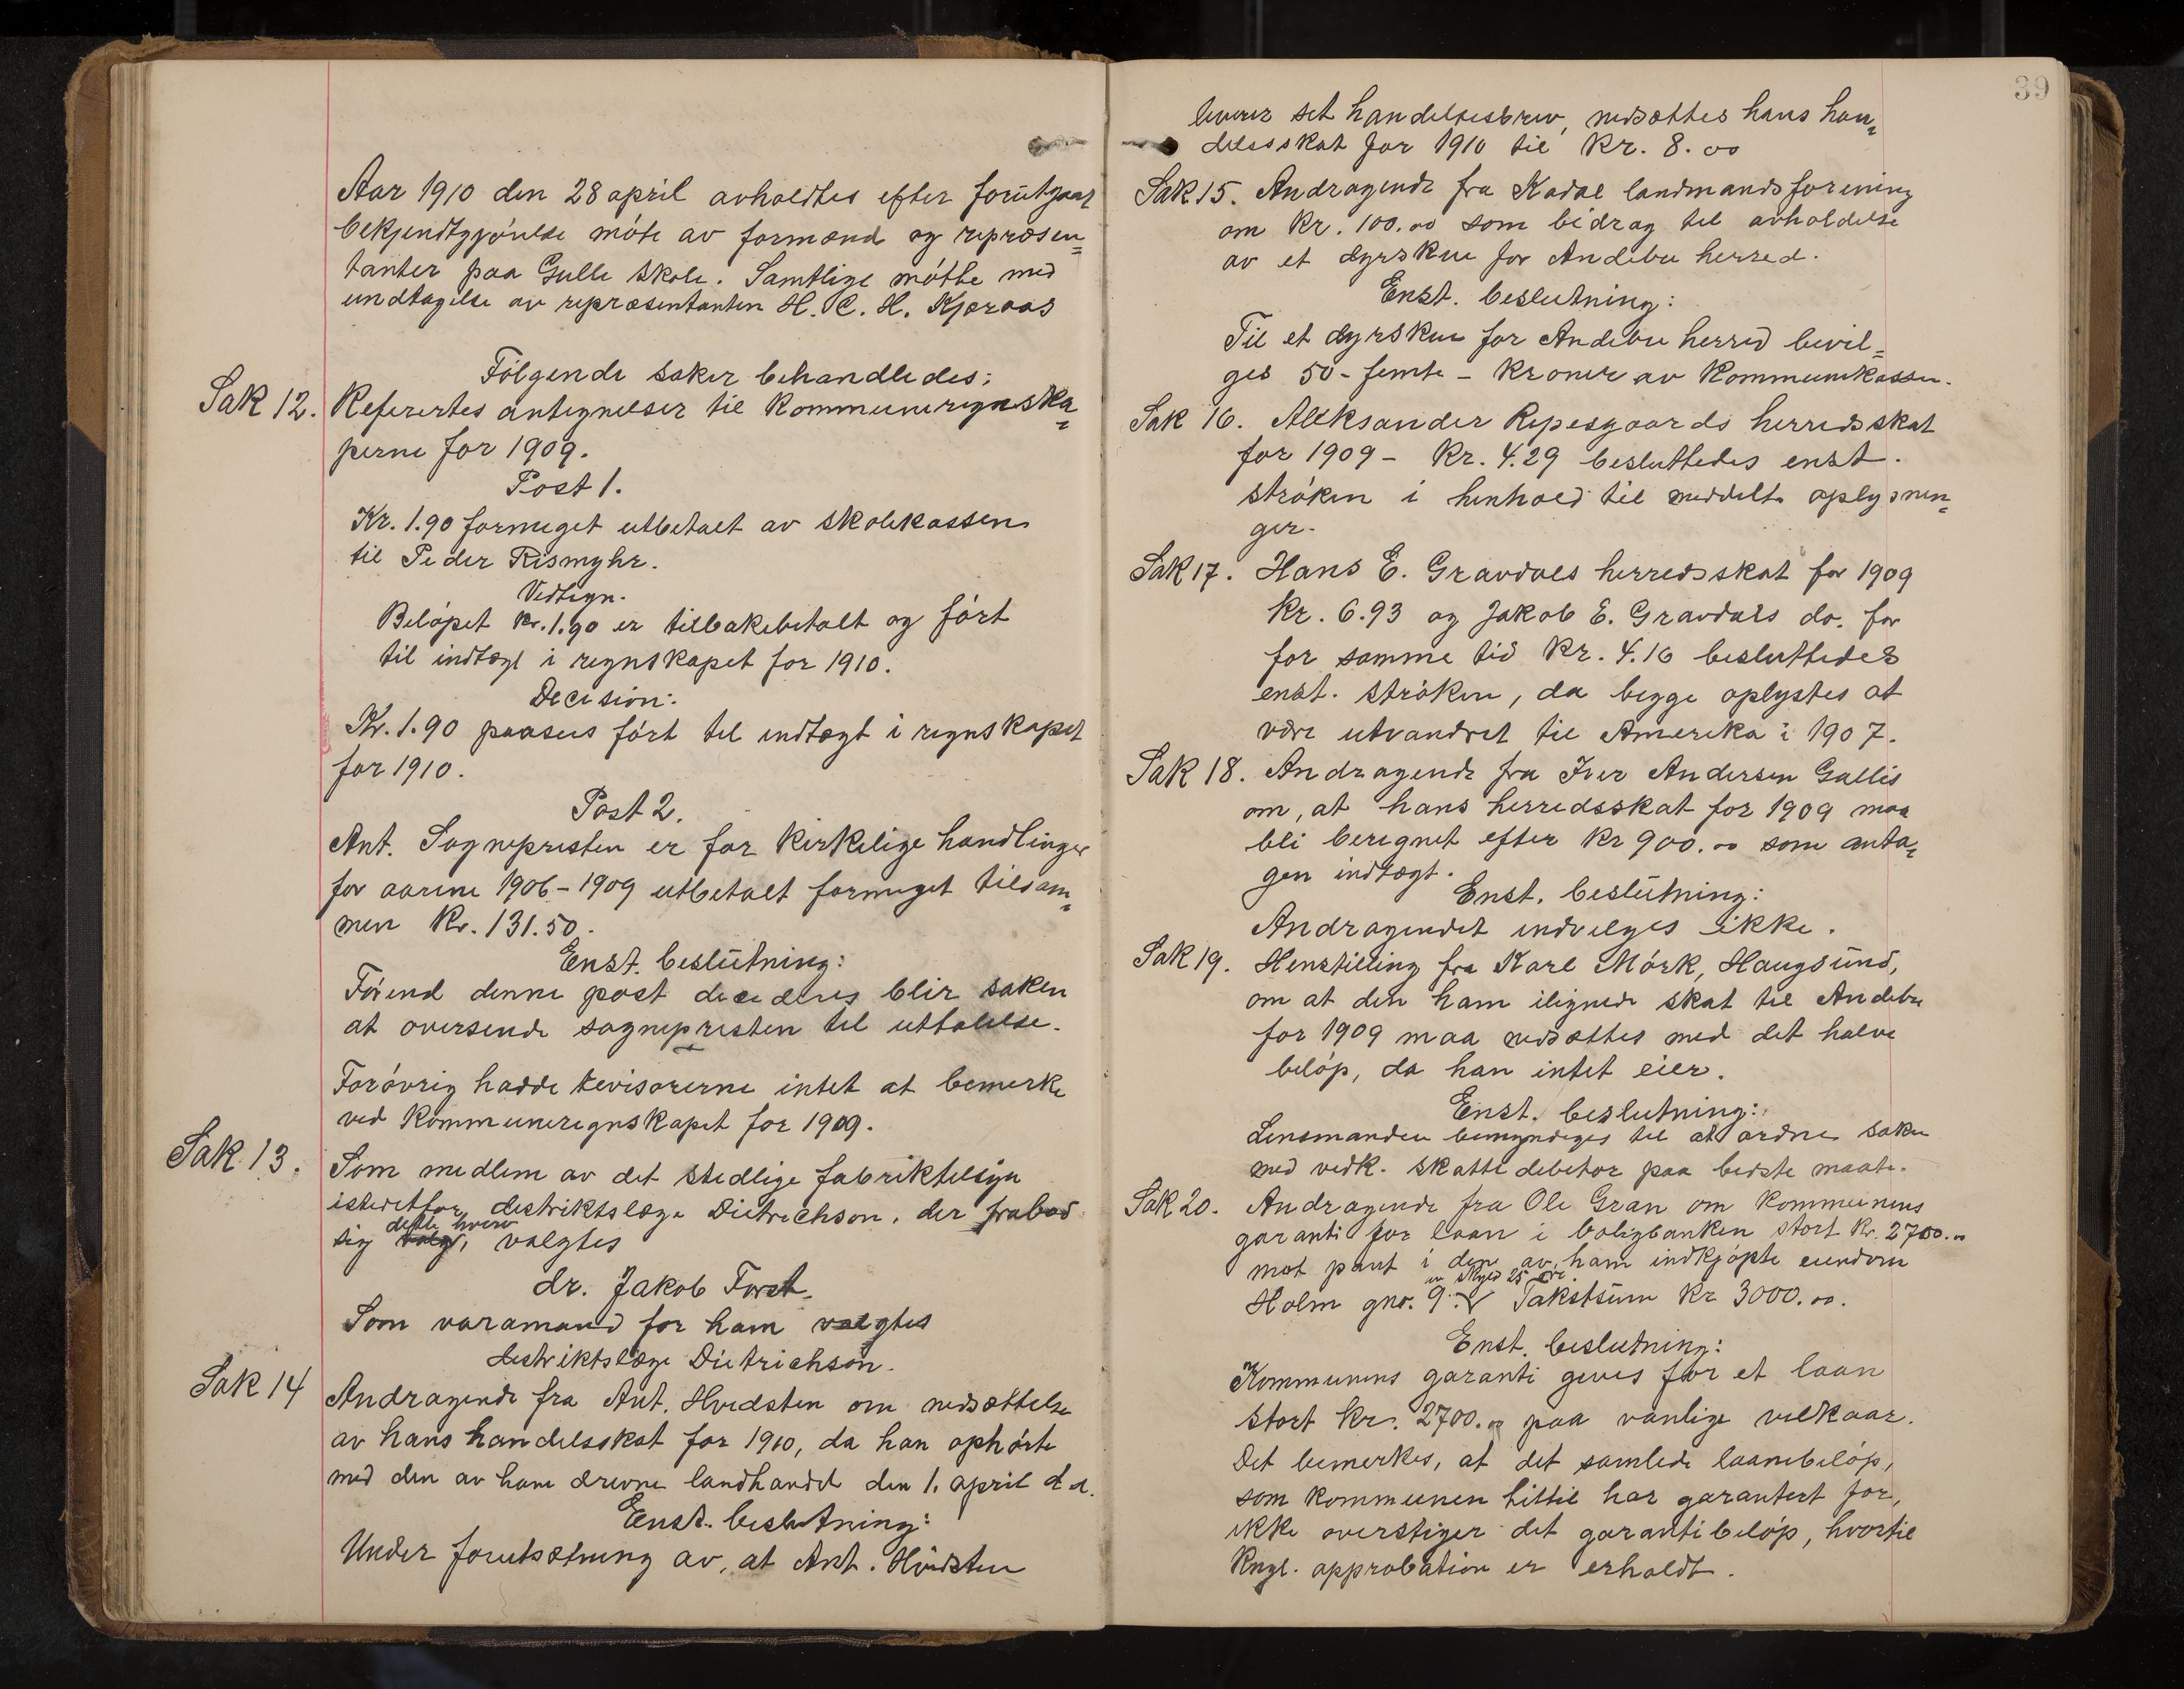 Aar 1910 den 28 april avholdtes efter forutgaat
bekjendtgjörelse möte av formænd og repræsen=
tanter paa Gulli skole. Samtlige mötte med
undtagelse av repræsentanten H. C. H. Kjæraas
Fölgende saker behandledes:
Sak 12. Refertes antegnelser til kommuneregnska=
perne for 1909.
Post 1.
Kr. 1.90 formeget utbetalt av skolekassen
til Peder Rismyhr.
Vedtegn.
Belöpet kr. 1.90 er tilbakebetalt og fört
til indtægt i regnskapet for 1910.
Decision:
Kr. 1.90 paasees fört til indtægt i regnskapet
for 1910.
Post 2.
Ant. Sognepresten er for kirkelige handlinger
for aarene 1906-1909 utbetalt formeget tilsam=
men Kr. 131.50.
Enst. beslutning:
Förend denne post decideres blir saken
at oversende sognepresten til uttalelse.
Forövrig hadde revisorerne intet at bemerke
ved kommuneregnskapet for 1909.
Sak 13. Som medlem av det stedlige fabriktilsyn
istedetfor distriktslæge Dietrichson, der frabad
sig dette hverv, valgtes
dr. Jakob Furst.
Som varamand for ham valgtes
distriktslæge Dietrichson.
Sak 14 Andragende fra Ant. Hvidsten om nedsættelse
av hans handelsskat for 1910, da han ophörte
med den av ham drevne landhandel den 1. april d. a.
Enst. beslutning:
Under forutsætning av, at Ant. Hvidsten
39
leverer set handelsesbrev, nedsættes hans han=
delsskat for 1910 til kr. 8.00
Sak 15. Andragende fra Kodal landmandsforening
om kr. 100.00 som bidrag til avholdelse
av et dyrskue for Andebu herred.
Enst. beslutning:
Til et dyrskue for Andebu herred bevil=
ges 50 - femti - kroner av kommunekassen.
Sak 16. Aleksander Ripesgaards herredsskat
for 1909 - kr. 4.29 besluttedes enst.
ströken i henhold til meddelte oplysnin=
ger.
Sak 17. Hans E. Gravdals herredsskat for 1909
kr. 6.93 og Jakob E. Gravdals do. for
for samme tid kr. 4.16 besluttedes
enst. ströken, da begge oplystes at
være utvandret til Amerika i 1907.
Sak 18. Andragende fra Iver Andersen Gallis
om, at hans herredsskat for 1909 maa
bli beregnet efter kr 900.00 som anta=
gen indtægt.
Enst. beslutning:
Andragendet indvilges ikke.
Sak 19. Henstilling fra Karl Mörk, Haugsund,
om at den ham ilignede skat til Andebu
for 1909 maa nedsættes med det halve
belöp, da han intet eier.
Enst. beslutning:
Lensmanden bemyndiges til at ordne saken
med vedk. skattedebitor paa bedste maate.
Sak 20. Andragende fra Ole Gran om kommunens
garanti for laan i boligbanken stort kr. 2700.00
mot pant i den av ham indkjöpte eiendom
av skyld 25 öre.
Holm gno. 9. Takstsum kr 3000.00.
Enst. beslutning:
Kommunens garanti gives for et laan
stort kr. 2700.00 paa vanlige vilkaar.
Det bemerkes, at det samlede laanebelöp,
som kommunen hittil har garantert for,
ikke overstiger det garantibelöp, hvortil
kngl. approbation er erholdt.